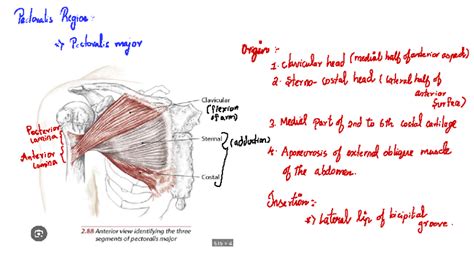 Pectoralis Region:-
=> Pectoralis major
Clavicular
(flexion
of arm)
Sternal
(adduction)
Costal
Posterior
lamina
Anterior
lamina
2.88 Anterior view identifying the three
segments of pectoralis major
Origin:-
1. clavicular head (medial half of anterior aspect)
2. Sterno-costal head (lateral half of
anterior
surface)
3. Medial part of 2nd to 6th costal cartilage
4. Aponeurosis of external oblique muscle
of the abdomen.
Insertion:-
=> Lateral lip of bicipital
groove.